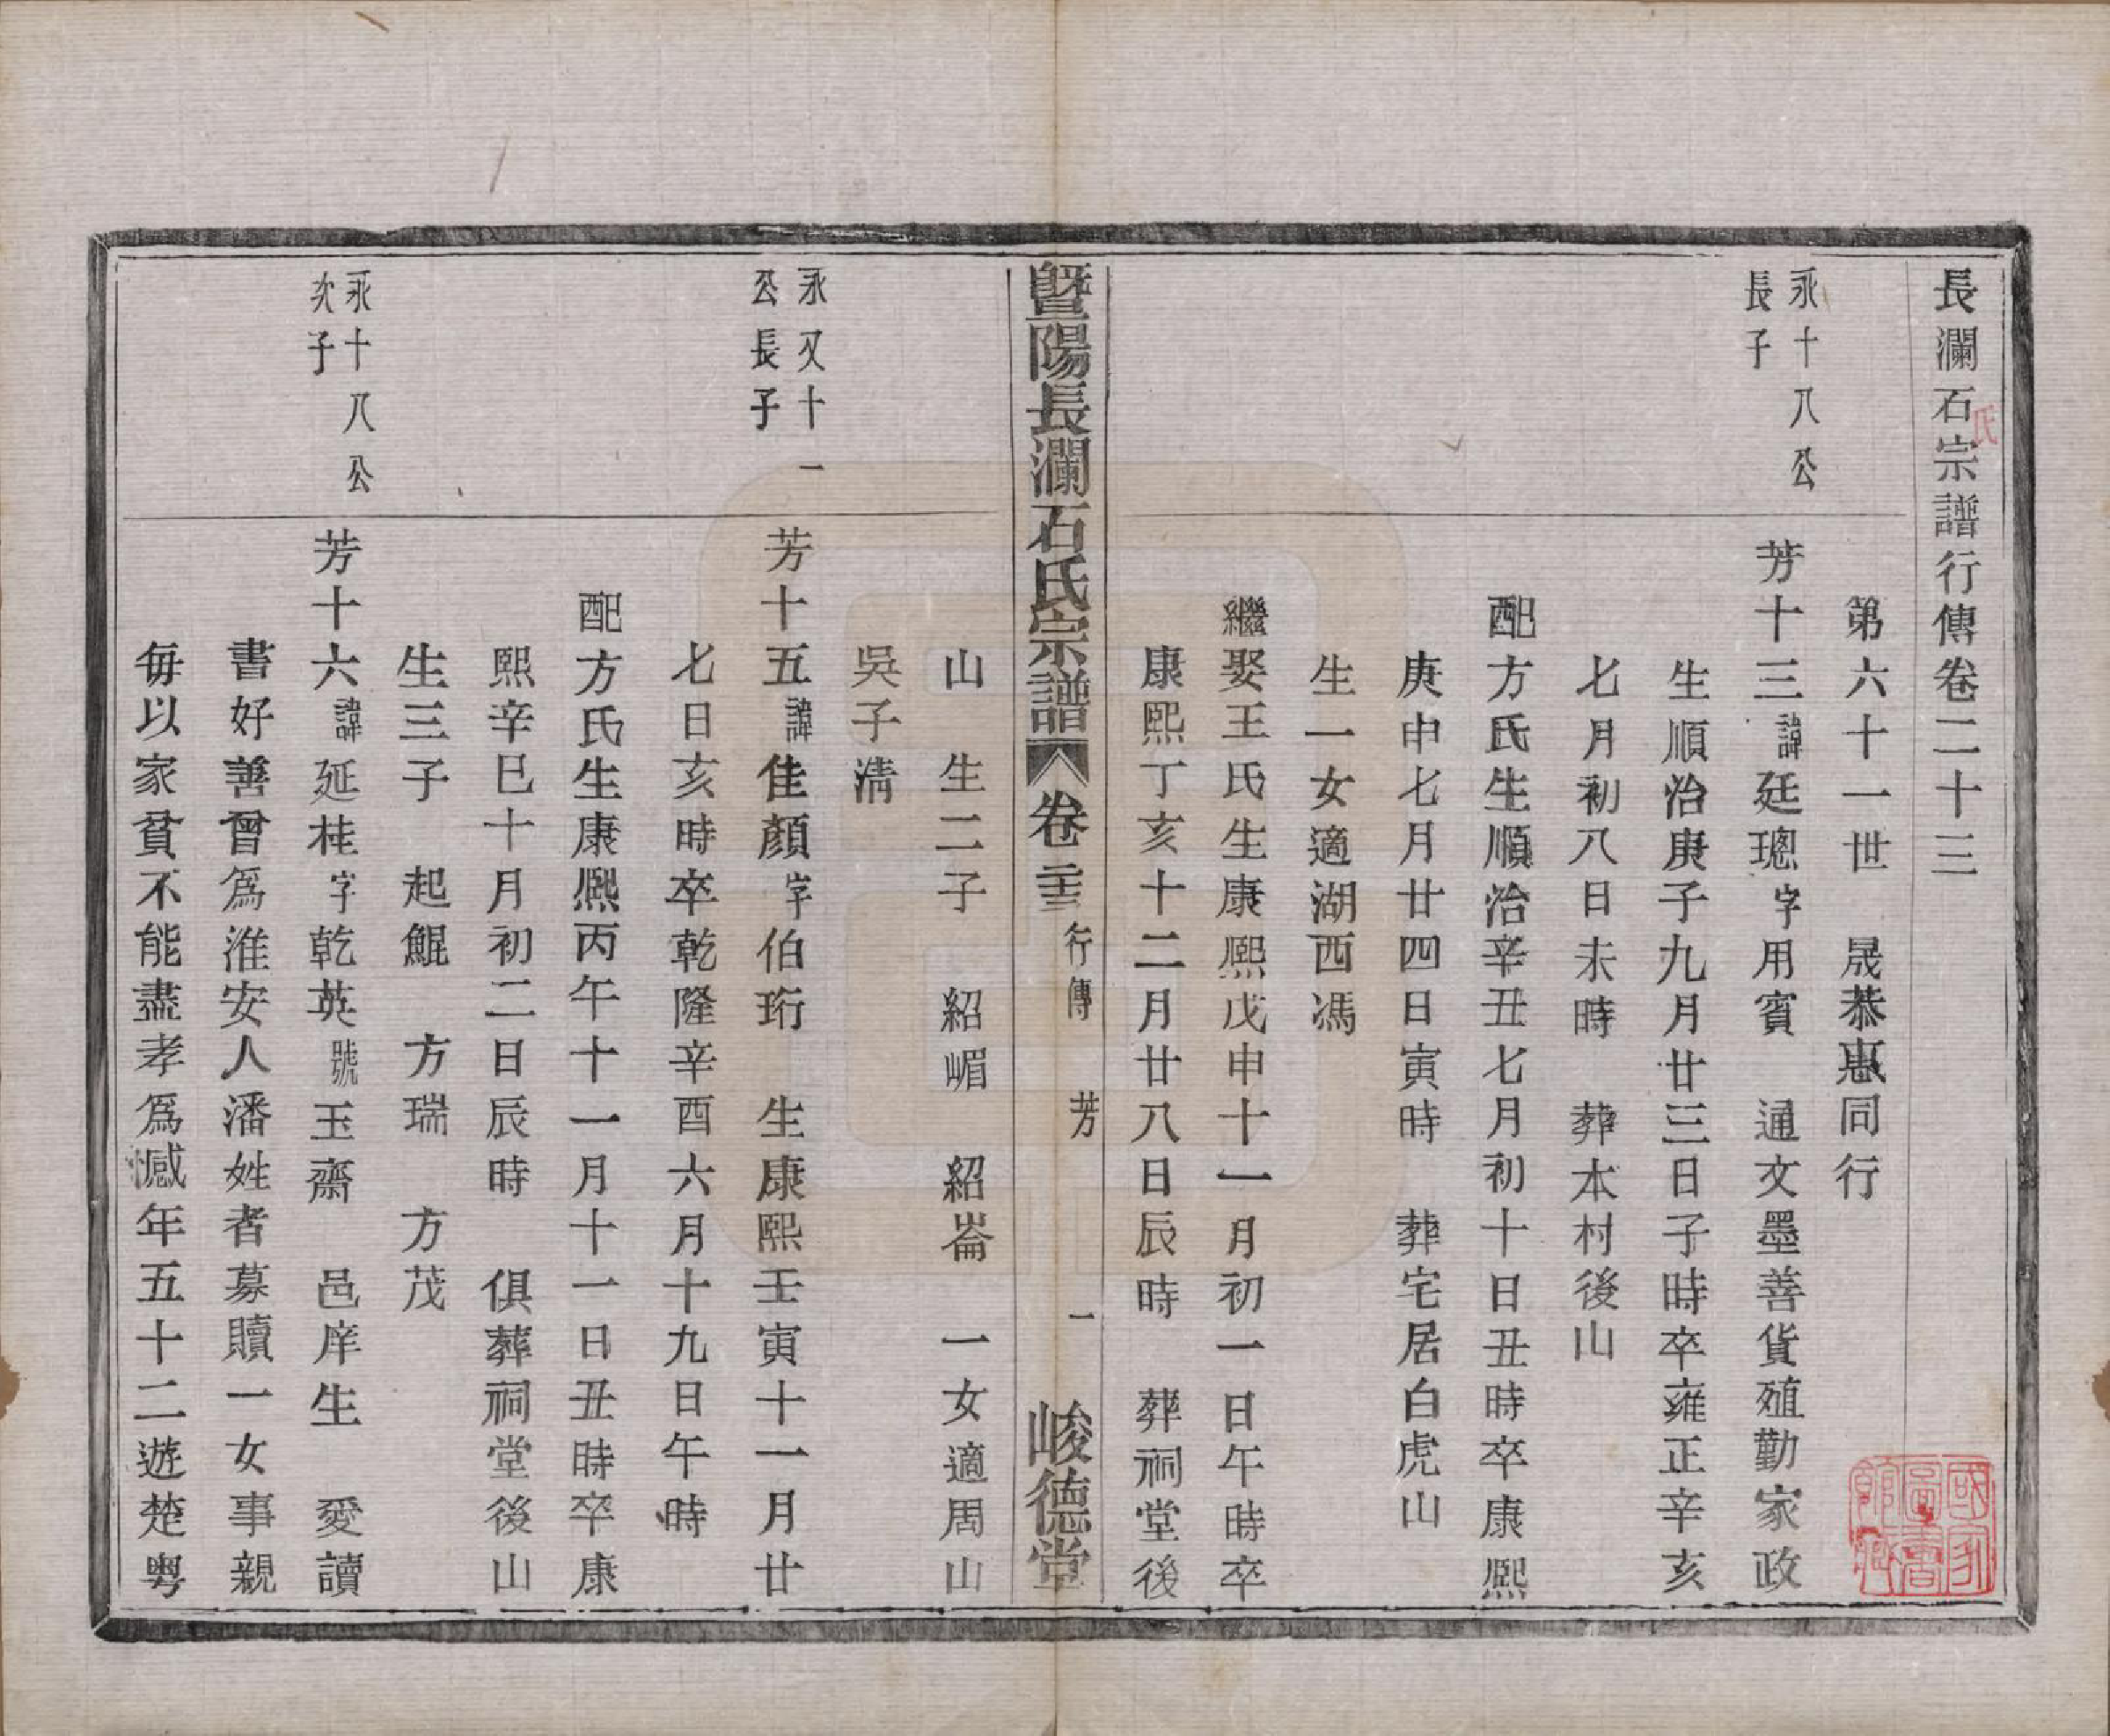 長瀾石宗譜行傳卷二十三
氏
第六十一世　晟恭惠同行
永十八公
長子
芳十三諱廷璁字用賓　通文墨善貨殖勤家政
生順治庚子九月廿三日子時卒雍正辛亥
七月初八日未時　葬本村後山
配方氏生順治辛丑七月初十日丑時卒康熙
庚申七月廿四日寅時　葬宅居白虎山
生一女適湖西馮
繼娶王氏生康熙戊申十一月初一日午時卒
康熙丁亥十二月廿八日辰時　葬祠堂後
暨陽長瀾石氏宗譜　卷二十三　行傳　芳　一　峻德堂
山　生二子　紹嵋　紹崙　一女適周山
吳子清
永又十一
公長子
芳十五諱佳顏字伯珩　生康熙壬寅十一月廿
七日亥時卒乾隆辛酉六月十九日午時
配方氏生康熙丙午十一月十一日丑時卒康
熙辛巳十月初二日辰時　俱葬祠堂後山
生三子　起鯤　方瑞　方茂
永十八公
次子
芳十六諱延桂字乾英號玉齋　邑庠生　愛讀
書好善曾爲淮安人潘姓者募贖一女事親
每以家貧不能盡孝爲憾年五十二遊楚粤
國家圖書館藏